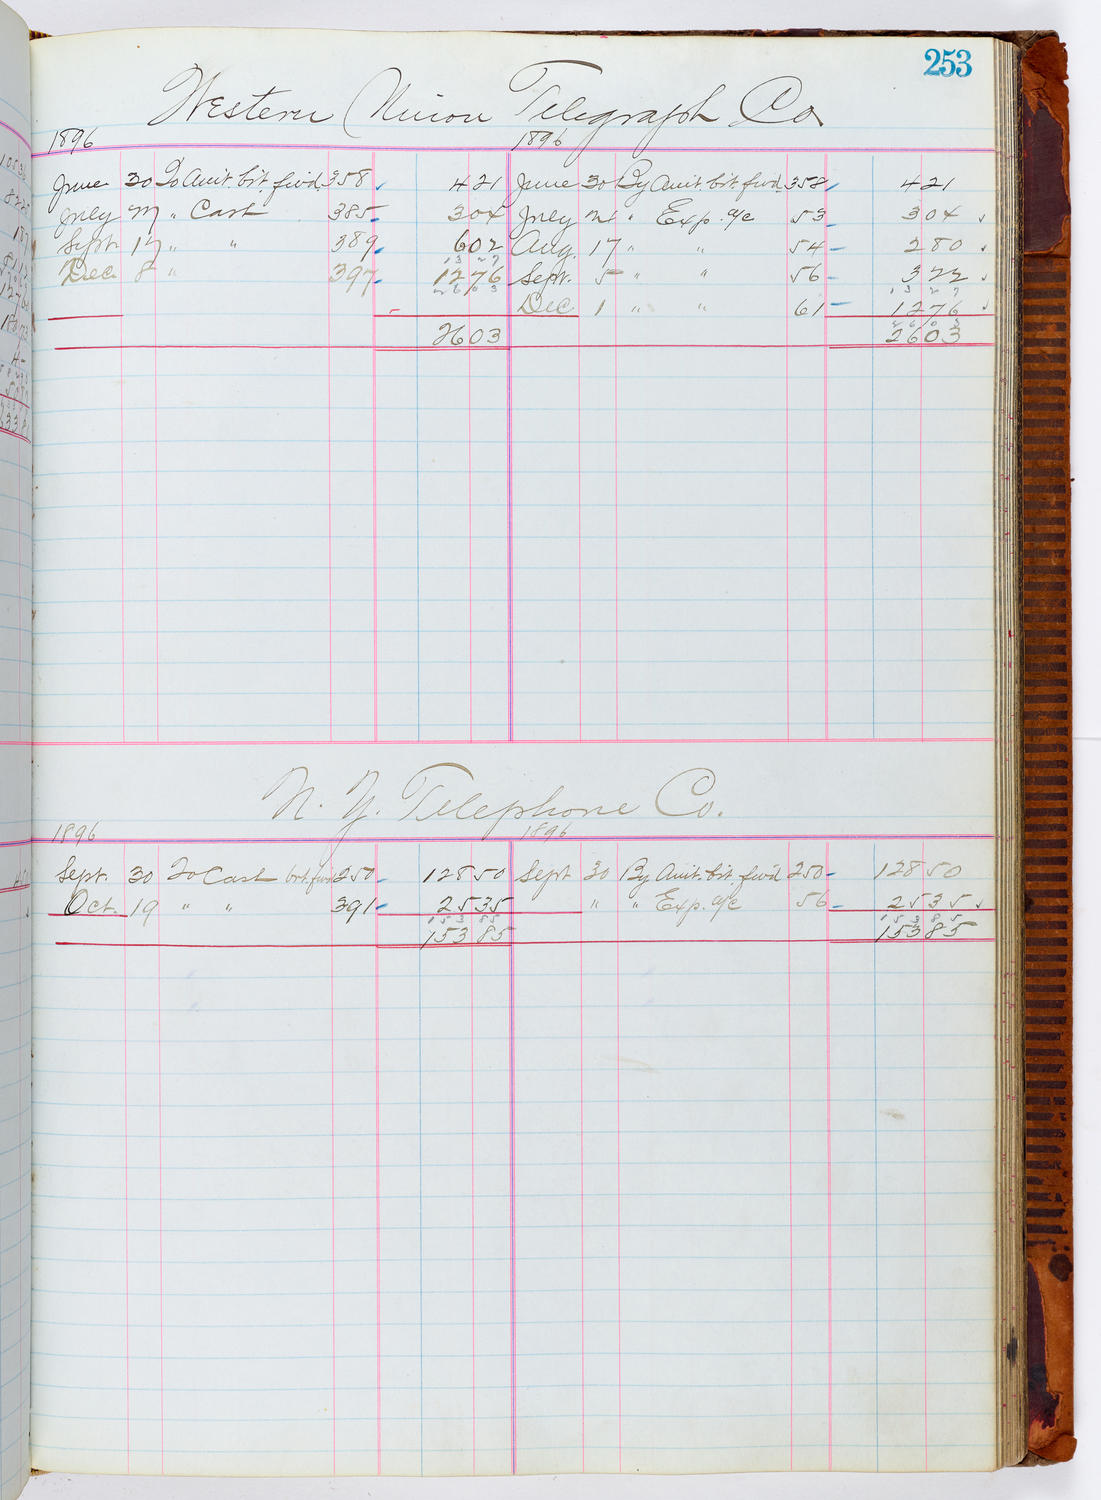 253
Western Union Telegraph Co
1896 1896
June 30 To Amt. brt. fwd. 358 421 June 30 By Amt. brt. fwd. 358 421
July " Cash 385 304 July " Exp. a/c 53 304
Sept. 17 " " 389 602 Aug. 17 " " 54 280
1327
Dec. 8 " 397 1276 Sept. 5 " " 56 322
2603 1327
Dec. 1 " " 61 1276
2603
2603 2603
N. Y. Telephone Co.
1896 1896
Sept. 30 To Cash brt fwd 250 128 50 Sept 30 By Amt. brt. fwd 250 128 50
Oct. 19 " " 391 25 35 " " Exp. a/c 56 25 35
153 85 153 85
153 85 153 85